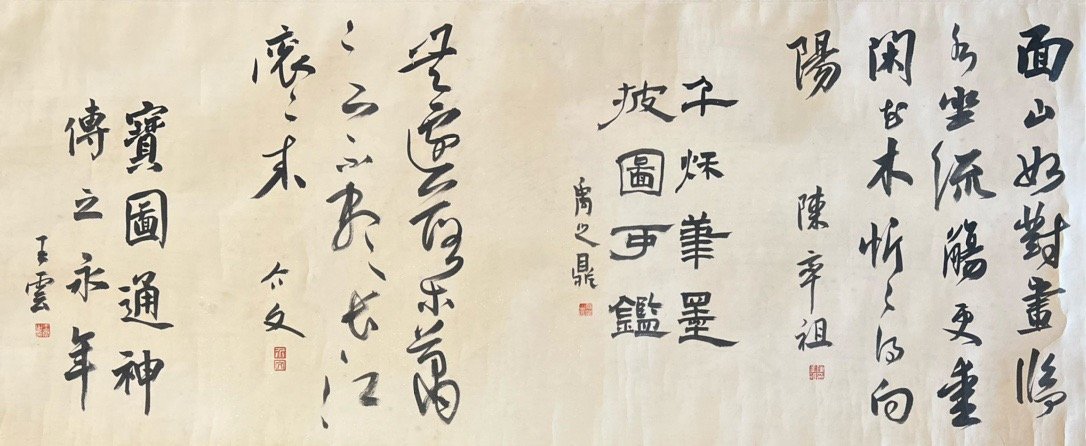 面山如對畫臨
水坐流觴更愛
閑花木忻〻得向
陽
陳率祖
千秋筆墨
披圖可鑑
禹之鼎
無邊落木蕭
〻下不盡長江
滾〻來
介文
寶圖通神
傳之永年
王雲